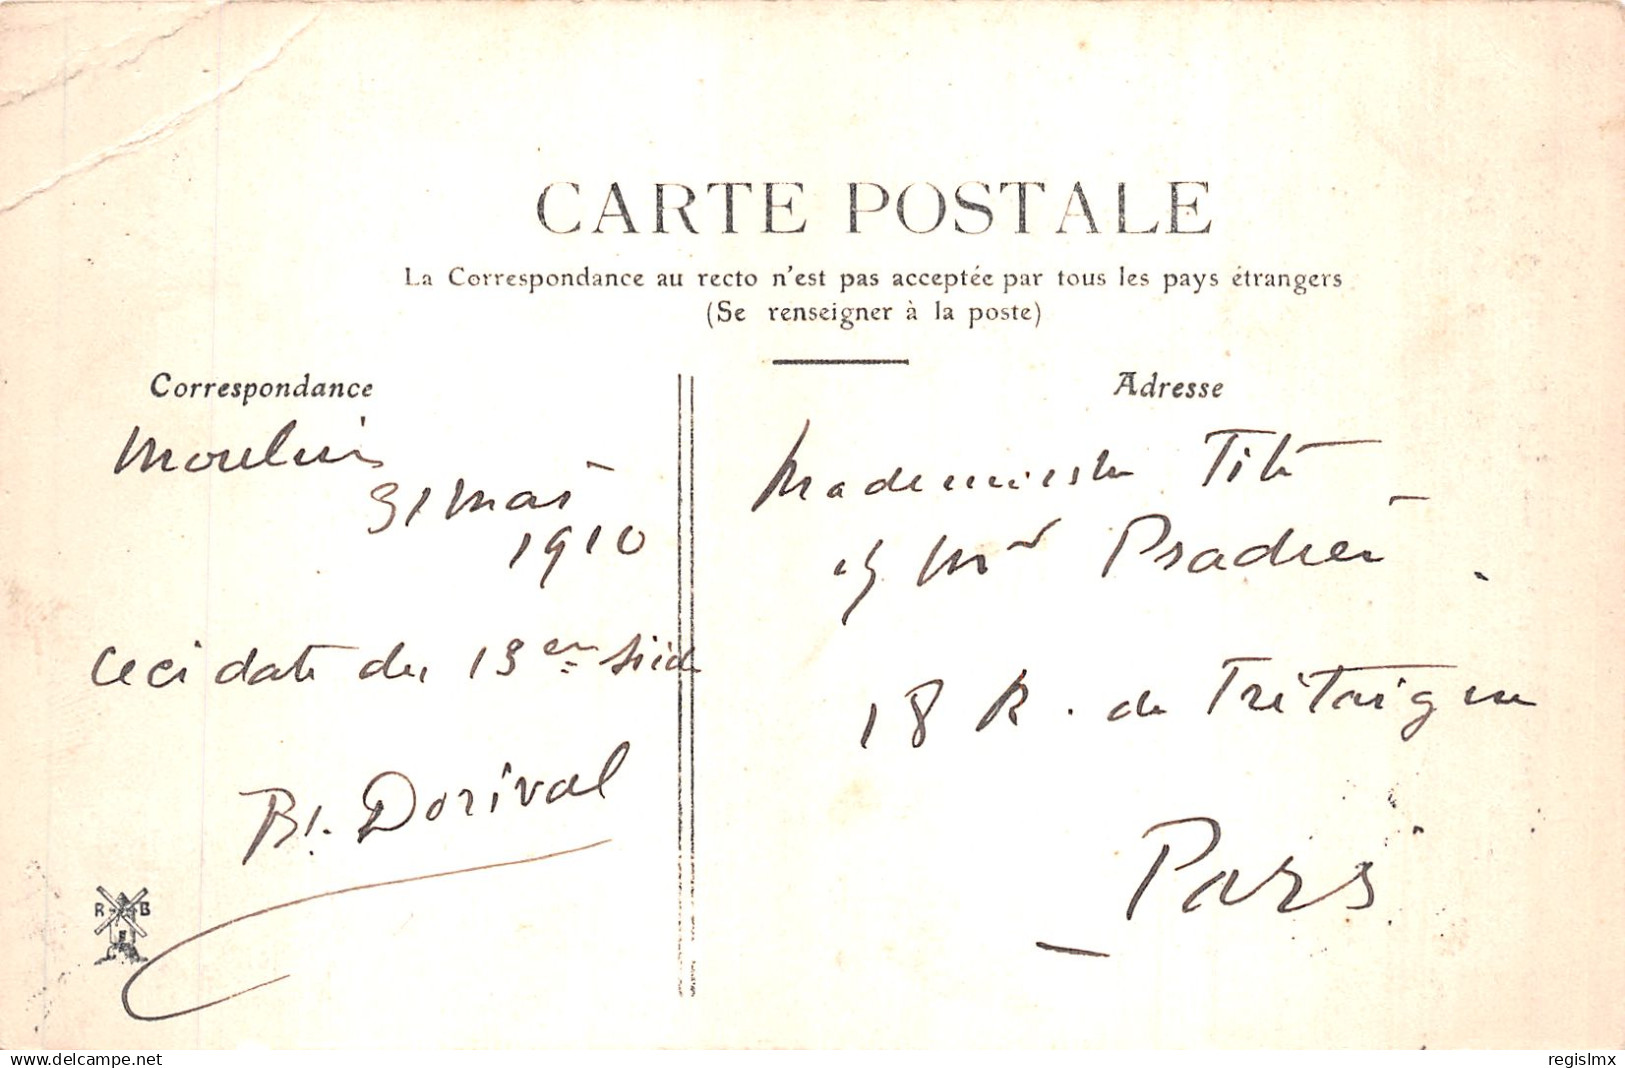 CARTE POSTALE
La Correspondance au recto n'est pas acceptée par tous les pays étrangers
(Se renseigner à la poste)
Correspondance
Moulins
31 Mai
1910
Ceci date du 13en siècle
Bl. Dorival
R B
Adresse
Mademoiselle Tite
Mr Pradier
18 R. de Trétaigne
Paris
delcampe.net
regislmx